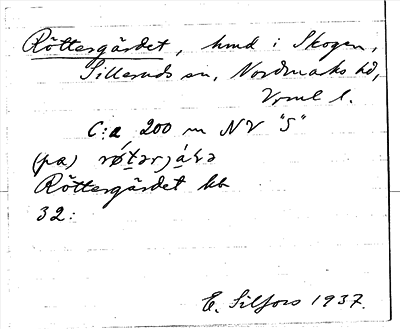 Röttergärdet, hmd i Skogen,
Silleruds sn, Nordmarks hd,
Vrml l.
C:a 200 m NV "S"
(pa)
Röttergärdet kb
32:
E. Silfors 1937.